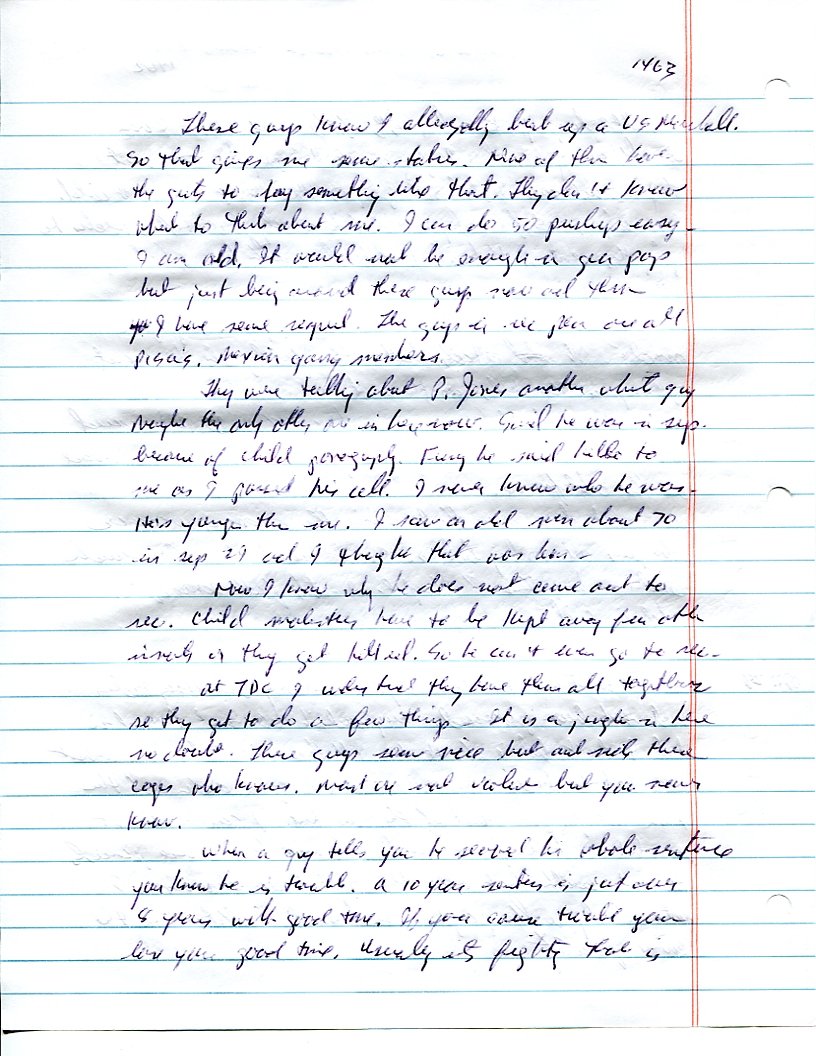 1463
These guys know I allegedly beat up a US Marshall.
So that gives me some status. None of them have
the guts to say something like that. They don't know
what to think about me. I can do 50 pushups easy
I am old. It would not be enough in gen pop
but just being around these guys now and then
I have some respect. The guys in rec pen are all
Pisa's. Mexican gang members.
They were talking about P. Jones another white guy
maybe the only other one in here now. Said he was in sep.
because of child pornography. Funny he said hello to
me as I passed his cell. I never knew who he was.
He's younger than me. I saw an old man about 70
in sep and I thought that was him
Now I know why he does not come out to
rec. Child molesters have to be kept away from other
inmates or they get killed. So he can't even go to rec.
at TDC I understand they have them all together
so they get to do a few things. It is a jungle in here
no doubt. These guys seem nice but outside these
cages who knows. Most are not violent but you never
know.
When a guy tells you he served his whole sentence
you know he is trouble. A 10 year sentence is just over
8 years with good time. If you cause trouble you
lose your good time. Usually its fighting that is